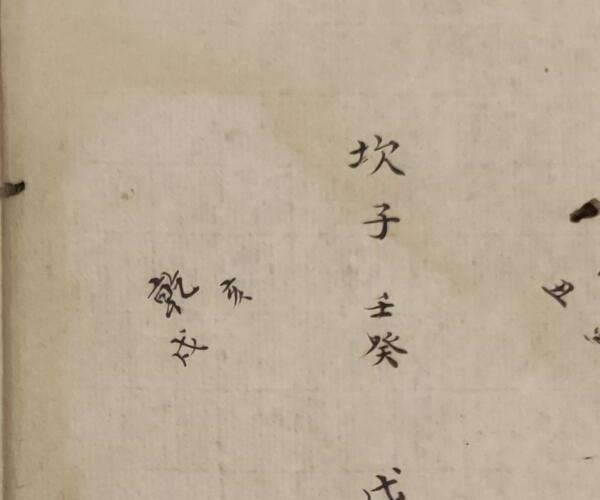 丑
坎
子
壬癸
戊
亥
乾
戌